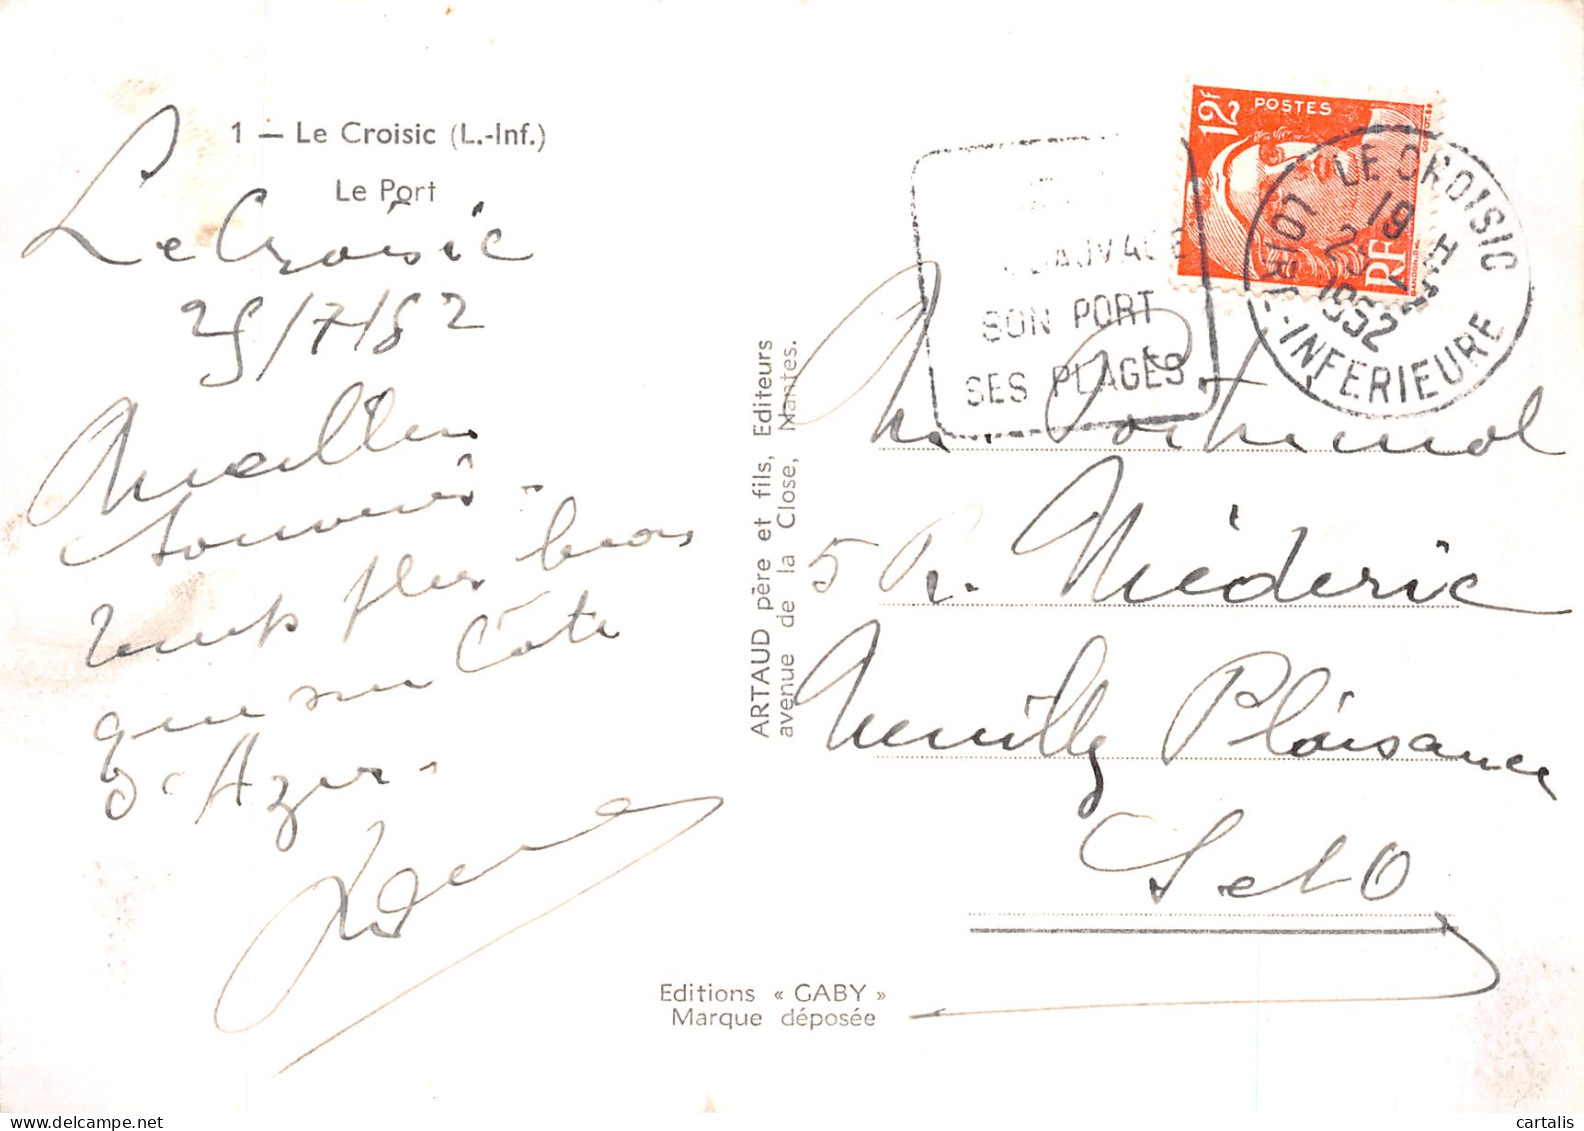 1 — Le Croisic (L.-Inf.)
Le Port
Le Croisic
25/7/52
Meilleurs
souvenirs -
temps plus beau
que sur Côte
d'Azur -
ARTAUD père et fils, Editeurs
avenue de la Close, Nantes.
Editions « GABY »
Marque déposée
12F
POSTES
RF
GANDON.DEL
SON PORT
SES PLAGES
LE CROISIC
LOIRE-INFERIEURE
19 H
1952
M. Porthemol
5 R. Médéric
Neuilly Plaisance
S et O
cartalis